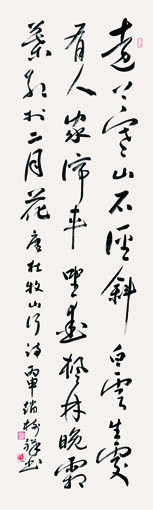 遠上寒山石徑斜白雲生處
有人家停車坐愛楓林晚霜
葉紅於二月花 唐杜牧山行詩 丙申 書